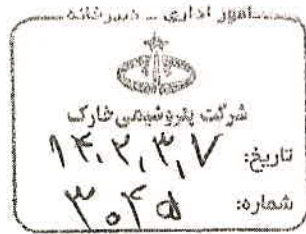 امور اداری - دبیرخانه
شرکت پتروشیمی خارک
تاریخ: ۱۴۰۲,۳,۷
شماره: ۳۰۴۵